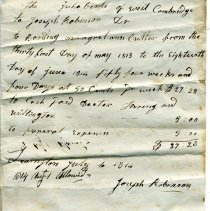 The Inhabitants of West Cambridge
to Joseph Robinson Dr
to Boarding Margaret Ann Cutler from the
thirty first Day of may 1813 to the Eighteenth
Day of June 1814 fifty four weeks and
four Days at 50 Cents pr week $ 27.28
to Cash paid Doctor and
Willington 5 00
to funeral expences 5 00
$ 37.28
Lexington July 1814
1814 Augt 1 Allowed
Joseph Robinson